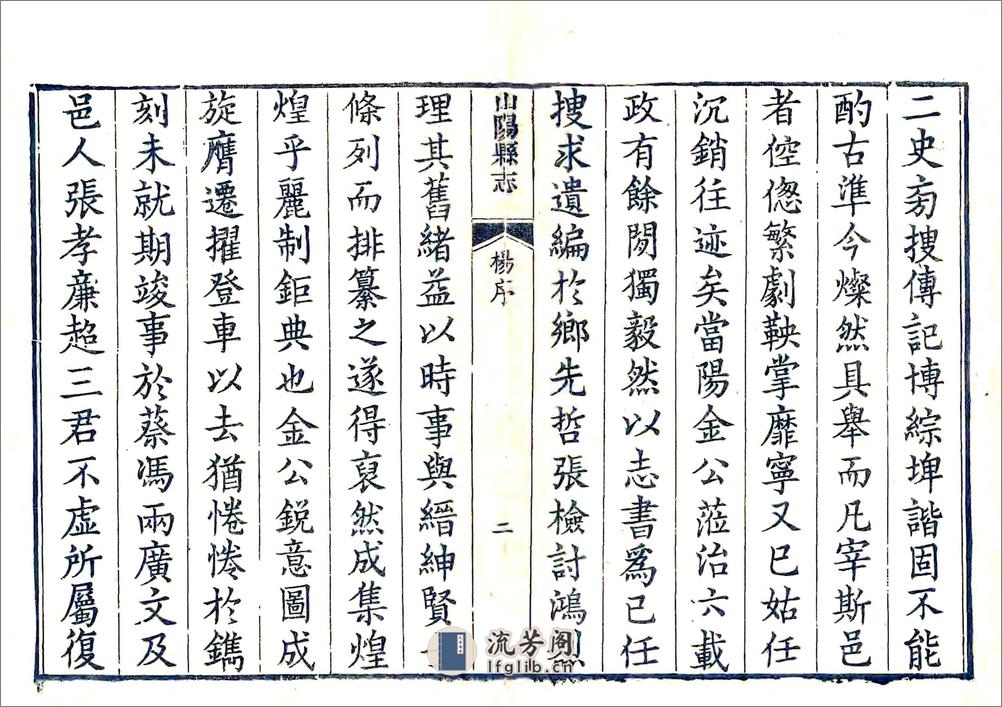 二史旁搜傳記博綜埤諧固不能
酌古準今燦然具舉而凡宰斯邑
者倥傯繁劇鞅掌靡寧又已姑任
沉銷往迹矣當陽金公蒞治六載
政有餘閒獨毅然以志書爲己任
搜求遺編於鄉先哲張檢討鴻烈
山陽縣志
楊序
二
理其舊緒益以時事與縉紳賢
條列而排纂之遂得裒然成集煌
煌乎麗制鉅典也金公銳意圖成
旋膺遷擢登車以去猶惓惓於鐫
刻未就期竣事於蔡馮兩廣文及
邑人張孝廉超三君不虛所屬復
流芳阁
lfglib.cn